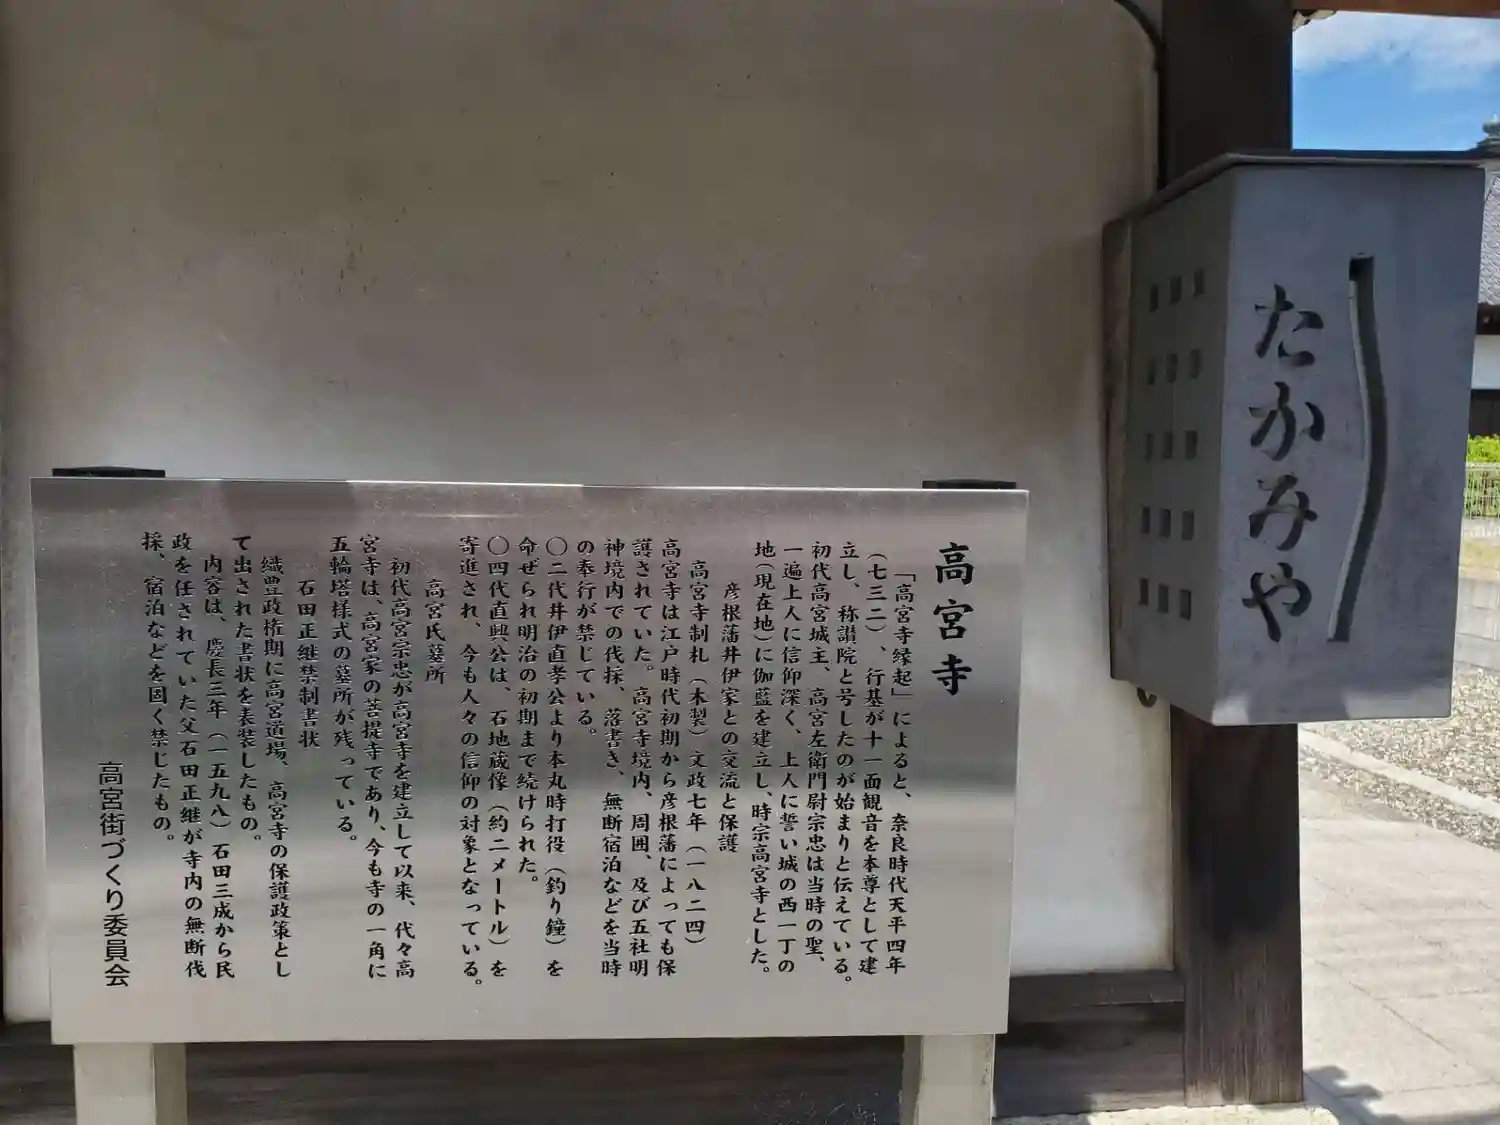 たかみや
高宮寺
「高宮寺縁起」によると、奈良時代天平四年
（七三二）、行基が十一面観音を本尊として建
立し、称讃院と号したのが始まりと伝えている。
初代高宮城主、高宮左衛門尉宗忠は当時の聖、
一遍上人に信仰深く、上人に誓い城の西一丁の
地（現在地）に伽藍を建立し、時宗高宮寺とした。
彦根藩井伊家との交流と保護
高宮寺制札（木製）文政七年（一八二四）
高宮寺は江戸時代初期から彦根藩によっても保
護されていた。高宮寺境内、周囲、及び五社明
神境内での伐採、落書き、無断宿泊などを当時
の奉行が禁じている。
〇二代井伊直孝公より本丸時打役（釣り鐘）を
命ぜられ明治の初期まで続けられた。
〇四代直興公は、石地蔵像（約二メートル）を
寄進され、今も人々の信仰の対象となっている。
高宮氏墓所
初代高宮宗忠が高宮寺を建立して以来、代々高
宮寺は、高宮家の菩提寺であり、今も寺の一角に
五輪塔様式の墓所が残っている。
石田正継禁制書状
織豊政権期に高宮道場、高宮寺の保護政策とし
て出された書状を表装したもの。
内容は、慶長三年（一五九八）石田三成から民
政を任されていた父石田正継が寺内の無断伐
採、宿泊などを固く禁じたもの。
高宮街づくり委員会